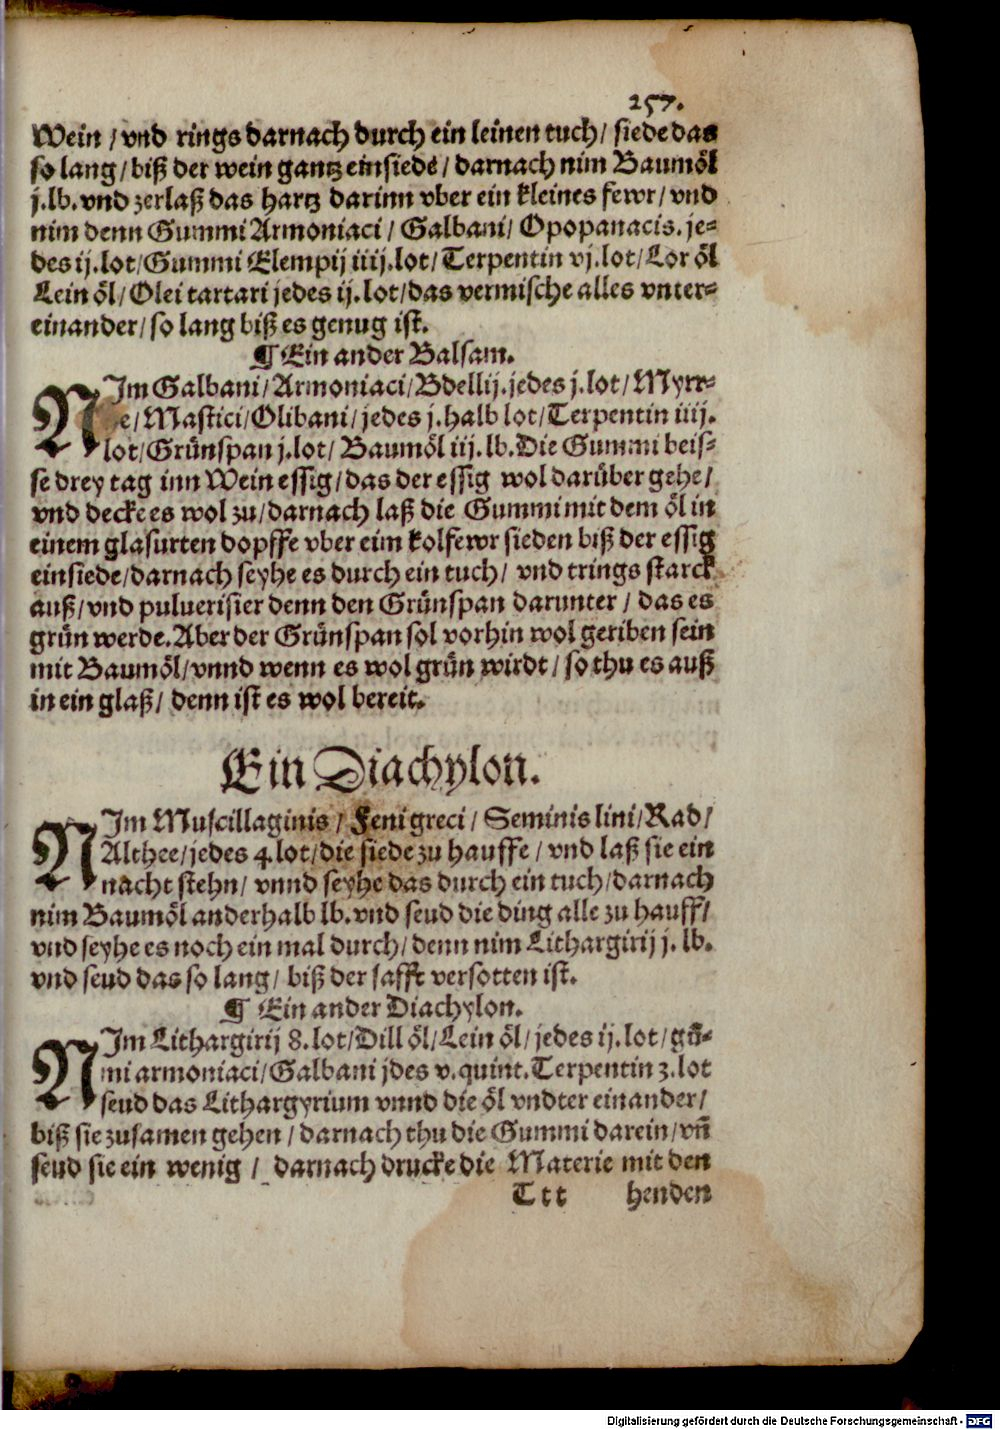 257.
Wein / vnd rings darnach durch ein leinen tuch / siede das
so lang / biß der wein gantz einsiede / darnach nim Baumöl
j. lb. vnd zerlaß das hartz darinn vber ein kleines fewr / vnd
nim denn Gummi Armoniaci / Galbani / Opopanacis. je=
des ij. lot / Gummi Elempij iiij. lot / Terpentin vj. lot / Lor öl
Lein öl / Olei tartari jedes ij. lot / das vermische alles vnter=
einander / so lang biß es genug ist.
¶ Ein ander Balsam.
NIm Galbani / Armoniaci / Bdellij. jedes j. lot / Myrr=
e / Mastici / Olibani / jedes j. halb lot / Terpentin iiij.
lot / Grünspan j. lot / Baumöl iij. lb. Die Gummi beis=
se drey tag inn Wein essig / das der essig wol darüber gehe /
vnd decke es wol zu / darnach laß die Gummi mit dem öl in
einem glasurten dopffe vber eim kolfewr sieden biß der essig
einsiede / darnach seyhe es durch ein tuch / vnd trings starck
auß / vnd puluerisier denn den Grünspan darunter / das es
grün werde. Aber der Grünspan sol vorhin wol geriben sein
mit Baumöl / vnnd wenn es wol grün wirdt / so thu es auß
in ein glaß / denn ist es wol bereit.
Ein Diachylon.
NIm Muscillaginis / Fenigreci / Seminis lini / Rad /
Althee / jedes 4. lot / die siede zu hauffe / vnd laß sie ein
nacht stehn / vnnd seyhe das durch ein tuch / darnach
nim Baumöl anderhalb lb. vnd seud die ding alle zu hauff /
vnd seyhe es noch ein mal durch / denn nim Lithargirij j. lb.
vnd seud das so lang / biß der safft versotten ist.
¶ Ein ander Diachylon.
NIm Lithargirij 8. lot / Dill öl / Lein öl / jedes ij. lot / gū=
mi armoniaci / Galbani jdes v. quint. Terpentin 3. lot
seud das Lithargyrium vnnd die öl vndter einander /
biß sie zusamen gehen / darnach thu die Gummi darein / vñ
seud sie ein wenig / darnach drucke die Materie mit den
Ttt henden
Digitalisierung gefördert durch die Deutsche Forschungsgemeinschaft - DFG